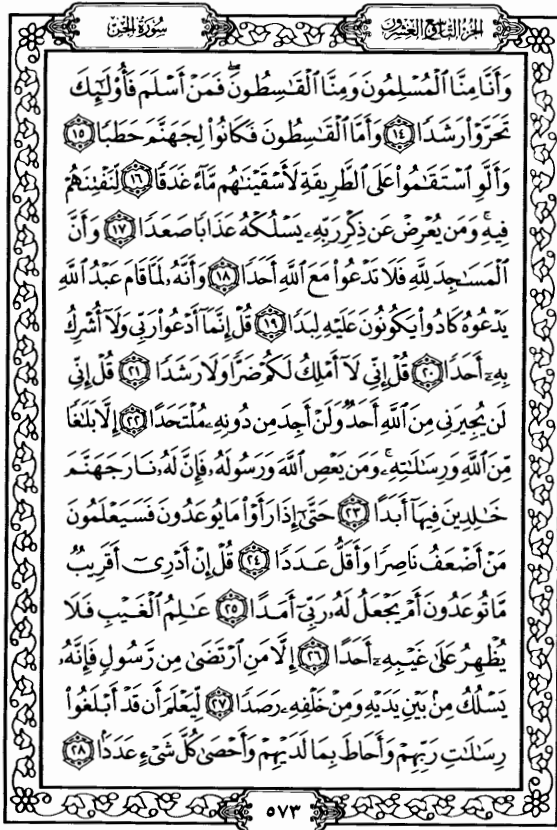 سُورَةُ الجِنّ
الجُزْءُ التَّاسِعُ وَالعِشْرُون
وَأَنَّا مِنَّا ٱلْمُسْلِمُونَ وَمِنَّا ٱلْقَـٰسِطُونَۖ فَمَنْ أَسْلَمَ فَأُو۟لَـٰٓئِكَ
تَحَرَّوْا۟ رَشَدًا ١٤ وَأَمَّا ٱلْقَـٰسِطُونَ فَكَانُوا۟ لِجَهَنَّمَ حَطَبًا ١٥
وَأَلَّوِ ٱسْتَقَـٰمُوا۟ عَلَى ٱلطَّرِيقَةِ لَأَسْقَيْنَـٰهُم مَّآءً غَدَقًا ١٦ لِّنَفْتِنَهُمْ
فِيهِۚ وَمَن يُعْرِضْ عَن ذِكْرِ رَبِّهِۦ يَسْلُكْهُ عَذَابًا صَعَدًا ١٧ وَأَنَّ
ٱلْمَسَـٰجِدَ لِلَّهِ فَلَا تَدْعُوا۟ مَعَ ٱللَّهِ أَحَدًا ١٨ وَأَنَّهُۥ لَمَّا قَامَ عَبْدُ ٱللَّهِ
يَدْعُوهُ كَادُوا۟ يَكُونُونَ عَلَيْهِ لِبَدًا ١٩ قُلْ إِنَّمَآ أَدْعُوا۟ رَبِّى وَلَآ أُشْرِكُ
بِهِۦٓ أَحَدًا ٢٠ قُلْ إِنِّى لَآ أَمْلِكُ لَكُمْ ضَرًّا وَلَا رَشَدًا ٢١ قُلْ إِنِّى
لَن يُجِيرَنِى مِنَ ٱللَّهِ أَحَدٌ وَلَنْ أَجِدَ مِن دُونِهِۦ مُلْتَحَدًا ٢٢ إِلَّا بَلَـٰغًا
مِّنَ ٱللَّهِ وَرِسَـٰلَـٰتِهِۦۚ وَمَن يَعْصِ ٱللَّهَ وَرَسُولَهُۥ فَإِنَّ لَهُۥ نَارَ جَهَنَّمَ
خَـٰلِدِينَ فِيهَآ أَبَدًا ٢٣ حَتَّىٰٓ إِذَا رَأَوْا۟ مَا يُوعَدُونَ فَسَيَعْلَمُونَ
مَنْ أَضْعَفُ نَاصِرًا وَأَقَلُّ عَدَدًا ٢٤ قُلْ إِنْ أَدْرِىٓ أَقَرِيبٌ
مَّا تُوعَدُونَ أَمْ يَجْعَلُ لَهُۥ رَبِّىٓ أَمَدًا ٢٥ عَـٰلِمُ ٱلْغَيْبِ فَلَا
يُظْهِرُ عَلَىٰ غَيْبِهِۦٓ أَحَدًا ٢٦ إِلَّا مَنِ ٱرْتَضَىٰ مِن رَّسُولٍ فَإِنَّهُۥ
يَسْلُكُ مِنۢ بَيْنِ يَدَيْهِ وَمِنْ خَلْفِهِۦ رَصَدًا ٢٧ لِّيَعْلَمَ أَن قَدْ أَبْلَغُوا۟
رِسَـٰلَـٰتِ رَبِّهِمْ وَأَحَاطَ بِمَا لَدَيْهِمْ وَأَحْصَىٰ كُلَّ شَىْءٍ عَدَدًۢا ٢٨
٥٧٣